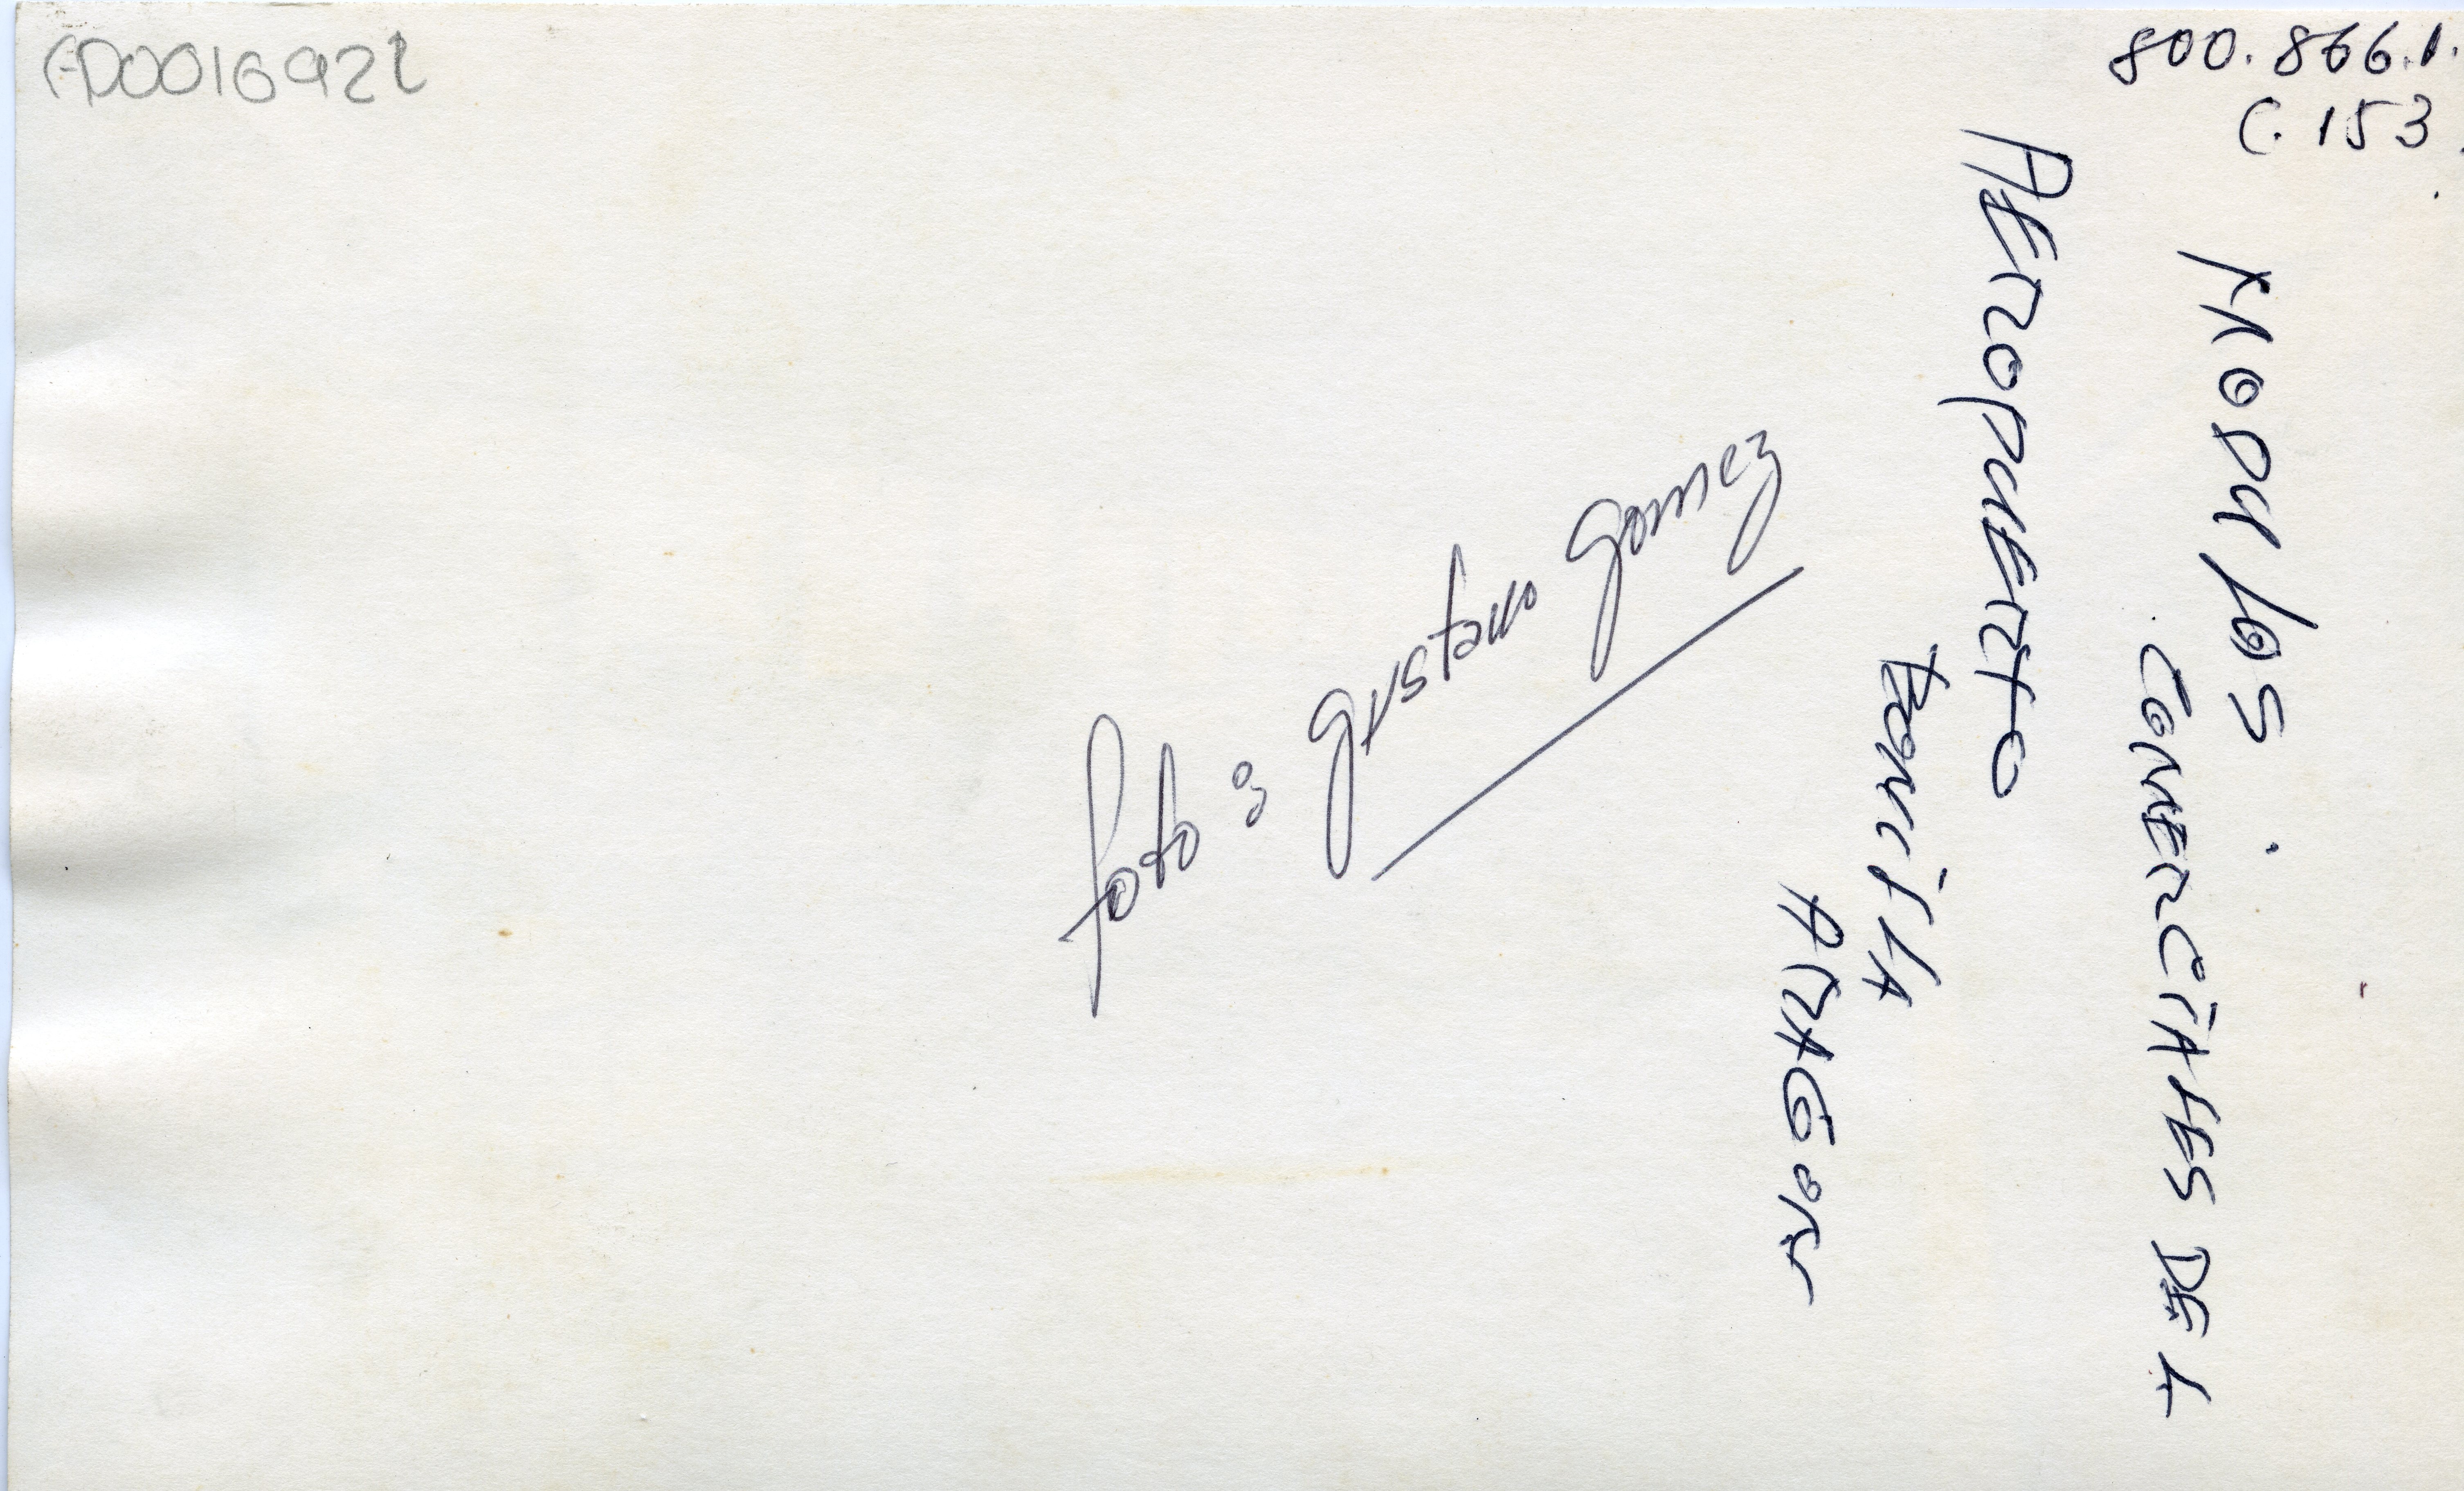 800.866.1.
C.153.
MODULOS
COMERCIALES DEL
AEROPUERTO
BONILLA
ARAGON
foto: gustavo gomez